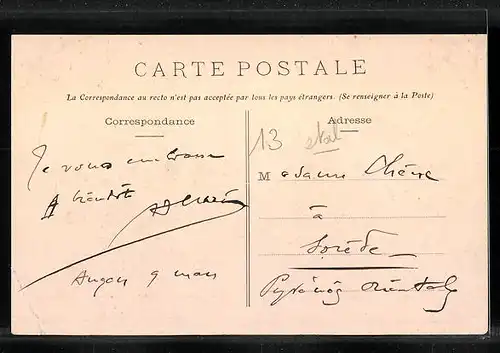 CARTE POSTALE
La Correspondance au recto n'est pas acceptée par tous les pays étrangers. (Se renseigner à la Poste)
Correspondance
Adresse
13
Je vous embrasse
A bientôt
Angers 9 mars
Madame
à
Sorède
Pyrénées Orientales